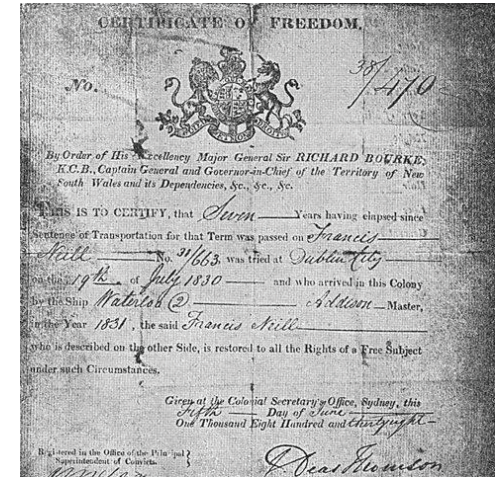 CERTIFICATE OF FREEDOM.
No. 38/470
By Order of His Excellency Major General Sir RICHARD BOURKE,
K.C.B., Captain General and Governor-in-Chief of the Territory of New
South Wales and its Dependencies, &c., &c., &c.
THIS IS TO CERTIFY, that Seven Years having elapsed since
Sentence of Transportation for that Term was passed on Francis
Neill No. 31/663, was tried at Dublin City
on the 19th of July 1830 and who arrived in this Colony
by the Ship Waterloo (2) Addison Master,
in the Year 1831, the said Francis Neill
who is described on the other Side, is restored to all the Rights of a Free Subject
under such Circumstances.
Given at the Colonial Secretary's Office, Sydney, this
Fifth Day of June
One Thousand Eight Hundred and thirty eight
Registered in the Office of the Principal
Superintendent of Convicts.
Deas Thomson